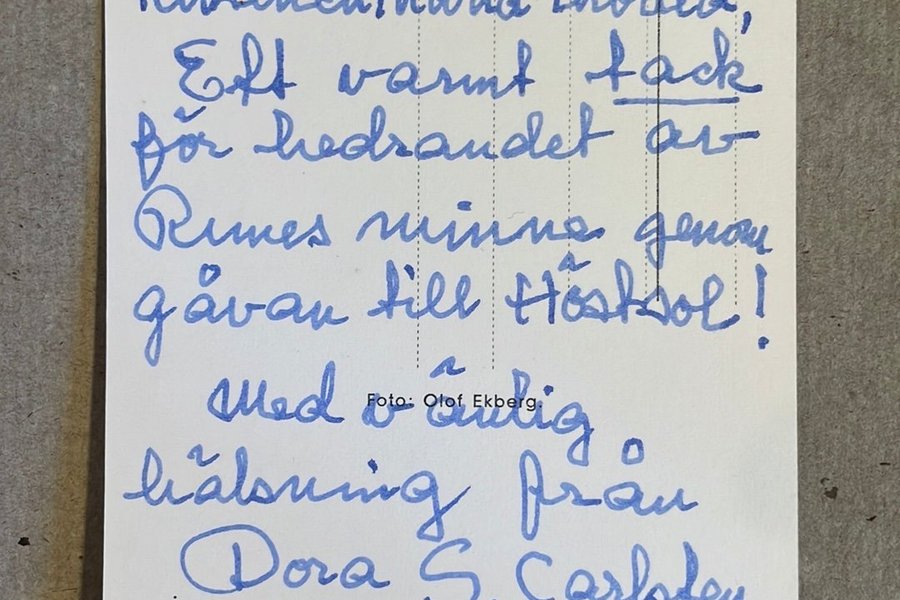 Ett varmt tack
för hedrandet av
Runes minne genom
gåvan till Höstsol!
Foto: Olof Ekberg
Med vänlig
hälsning från
Dora S. Carlsten